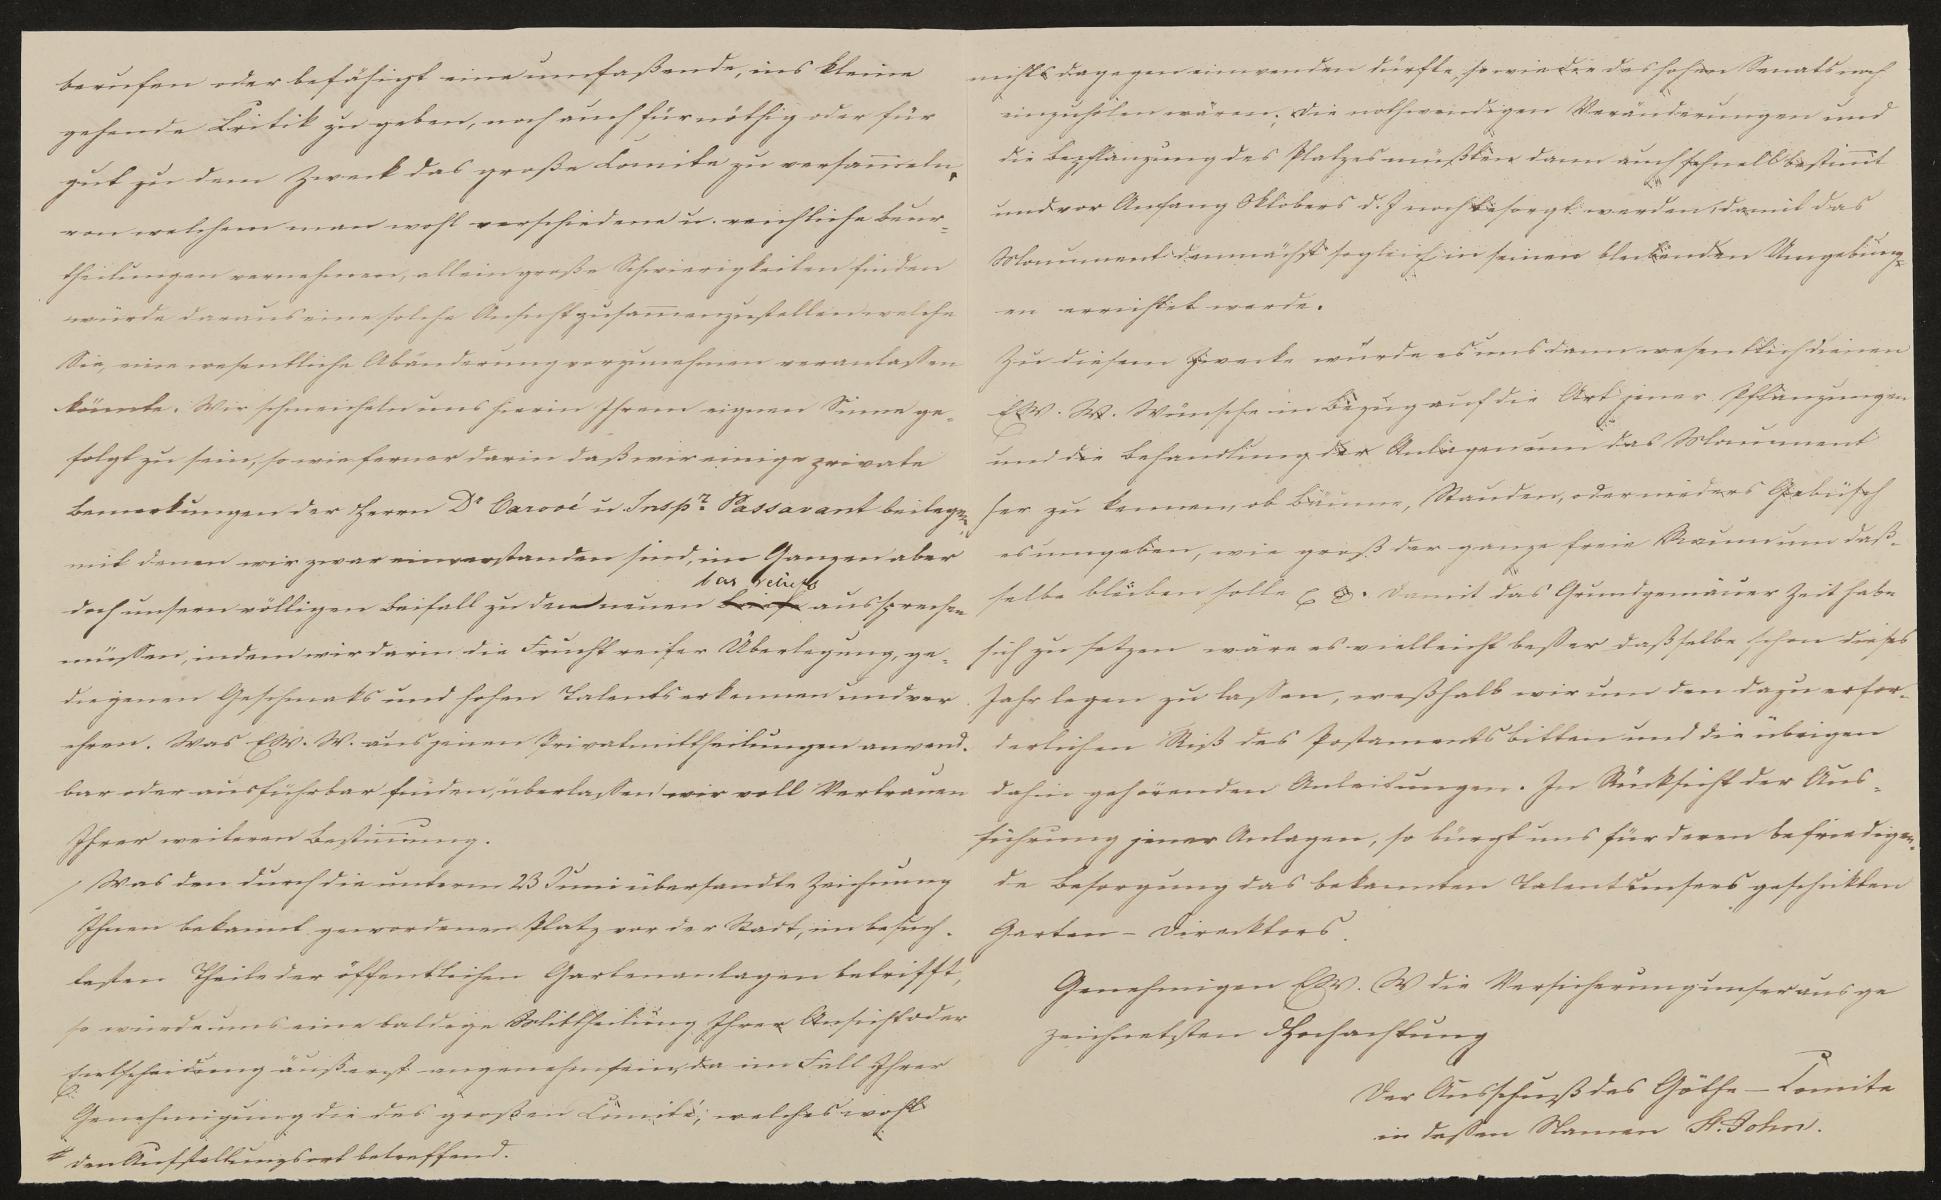 berufen oder befähigt eine umfaßende, ins kleine
gehende Critik zu geben, noch auch für nöthig oder für
gut zu dem Zweck das große Comite zu versam̅eln,
von welchem man wohl verschiedene u. reichliche Beur=
theilungen vernehmen, allein große Schwierigkeiten finden
würde daraus eine solche Ansicht zusam̅enzustellen welche
Sie, eine wesentliche Abänderung vorzunehmen veranlassen
könnte. Wir schmeicheln uns hierin Ihrem eignen Sinne ge-
folgt zu sein, so wie ferner darin daß wir einige private
Bemerkungen der Herrn Dr Carové u. Inspr. Passavant beilegen
mit denen wir zwar einverstanden sind, im Ganzen aber
doch unsern völligen Beifall zu dem neuen aussprechen
müssen, indem wir darin die Frucht reifer Überlegung, ge-
diegenen Geschmaks und hohen Talents erkennen und ver
ehren. Was EW. W. aus jenen Privatmittheilungen anwend-
bar oder ausführbar finden, überlassen wir voll Vertrauen
Ihrer weiteren Bestim̅ung.
/ Was den durch die unterm 23 Juni übersandte Zeichnung
Ihnen bekannt gewordenen Platz vor der Stadt, im besuch-
testen Theile der öffentlichen Gartenanlagen betrifft,
so würde uns eine baldige Mittheilung Ihrer Ansicht oder
Entscheidung äußerst angenehm sein, da im Fall Ihrer
Genehmigung die des großen Comité, welches wohl
* den Aufstellungsort betreffend.
nichts dagegen einwenden dürfte, so wie die des hohen Senats noch
einzuholen wären. Die nothwendigen Veränderungen und
die Bepflanzung des Platzes müßten dann auch schnell bestim̅t
und vor Anfang Oktobers d. J noch besorgt werden, damit das
Monument demnächst sogleich in seinen bleibenden Umgebung=
en errichtet werde.
Zu diesem Zwecke würde es uns dann wesentlich dienen
EW. W. Wünsche in Bezug auf die Art jener Pflanzungen
und die Behandlung der Anlagen um das Monument
her zu kennen, ob Bäume, Stauden, oder nieders Gebüsch
es umgeben, wie groß der ganze freie Raum um daß-
selbe bleiben solle. Damit das Grundgemäuer Zeit habe
sich zu setzen wäre es vielleicht besser daßselbe schon dieses
Jahr legen zu lassen, weßhalb wir um den dazu erfor-
derlichen Riß des Postaments bitten und die übrigen
dahin gehörenden Anleitungen. In Rücksicht der Aus=
führung jener Anlagen, so bürgt uns für deren befriedigen-
de Besorgung das bekannten Talent unsers geschickten
Garten-Direcktors.
Genehmigen EW. W die Versicherung unser ausge
zeichnetsten Hochachtung
Der Ausschuß des Göthe-Comite
in dessen Namen St. John.